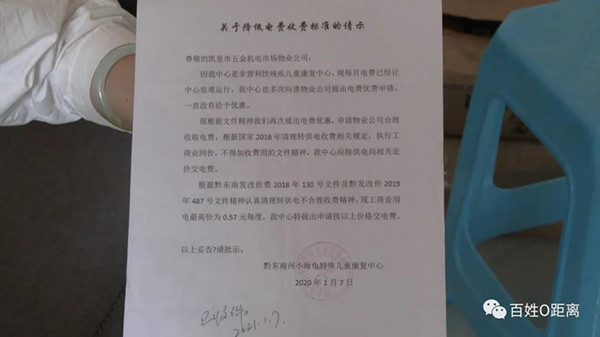 关于降低电费收费标准的请示
尊敬的凯里市五金机电市场物业公司：
因我中心是非营利性残疾儿童康复中心，现每月电费已经让
中心很难运行，我中心也多次向贵物业公司提出电费优费申请，
一直没有给予优惠。
现根据文件精神我们再次提出电费优惠，申请物业公司合理
收取电费，根据国家2018年清理转供电收费相关规定，执行工
商业同价，不得加收费用的文件精神，我中心应按供电局相关定
价交电费。
根据黔东南发改价费2018年130号文件及黔发改价2019
年487号文件精神认真清理转供电不合理收费精神，现工商业用
电最高价为0.57元每度，我中心特提出申请按以上价格交电费。
以上妥否?请批示。
黔东南州小海龟特殊儿童康复中心
2020年1月7日
已收件。
2021.1.7
百姓O距离